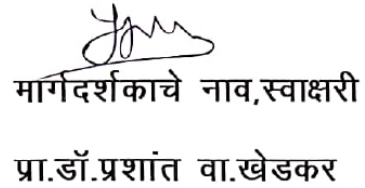 मार्गदर्शकाचे नाव,स्वाक्षरी
प्रा.डॉ.प्रशांत वा.खेडकर